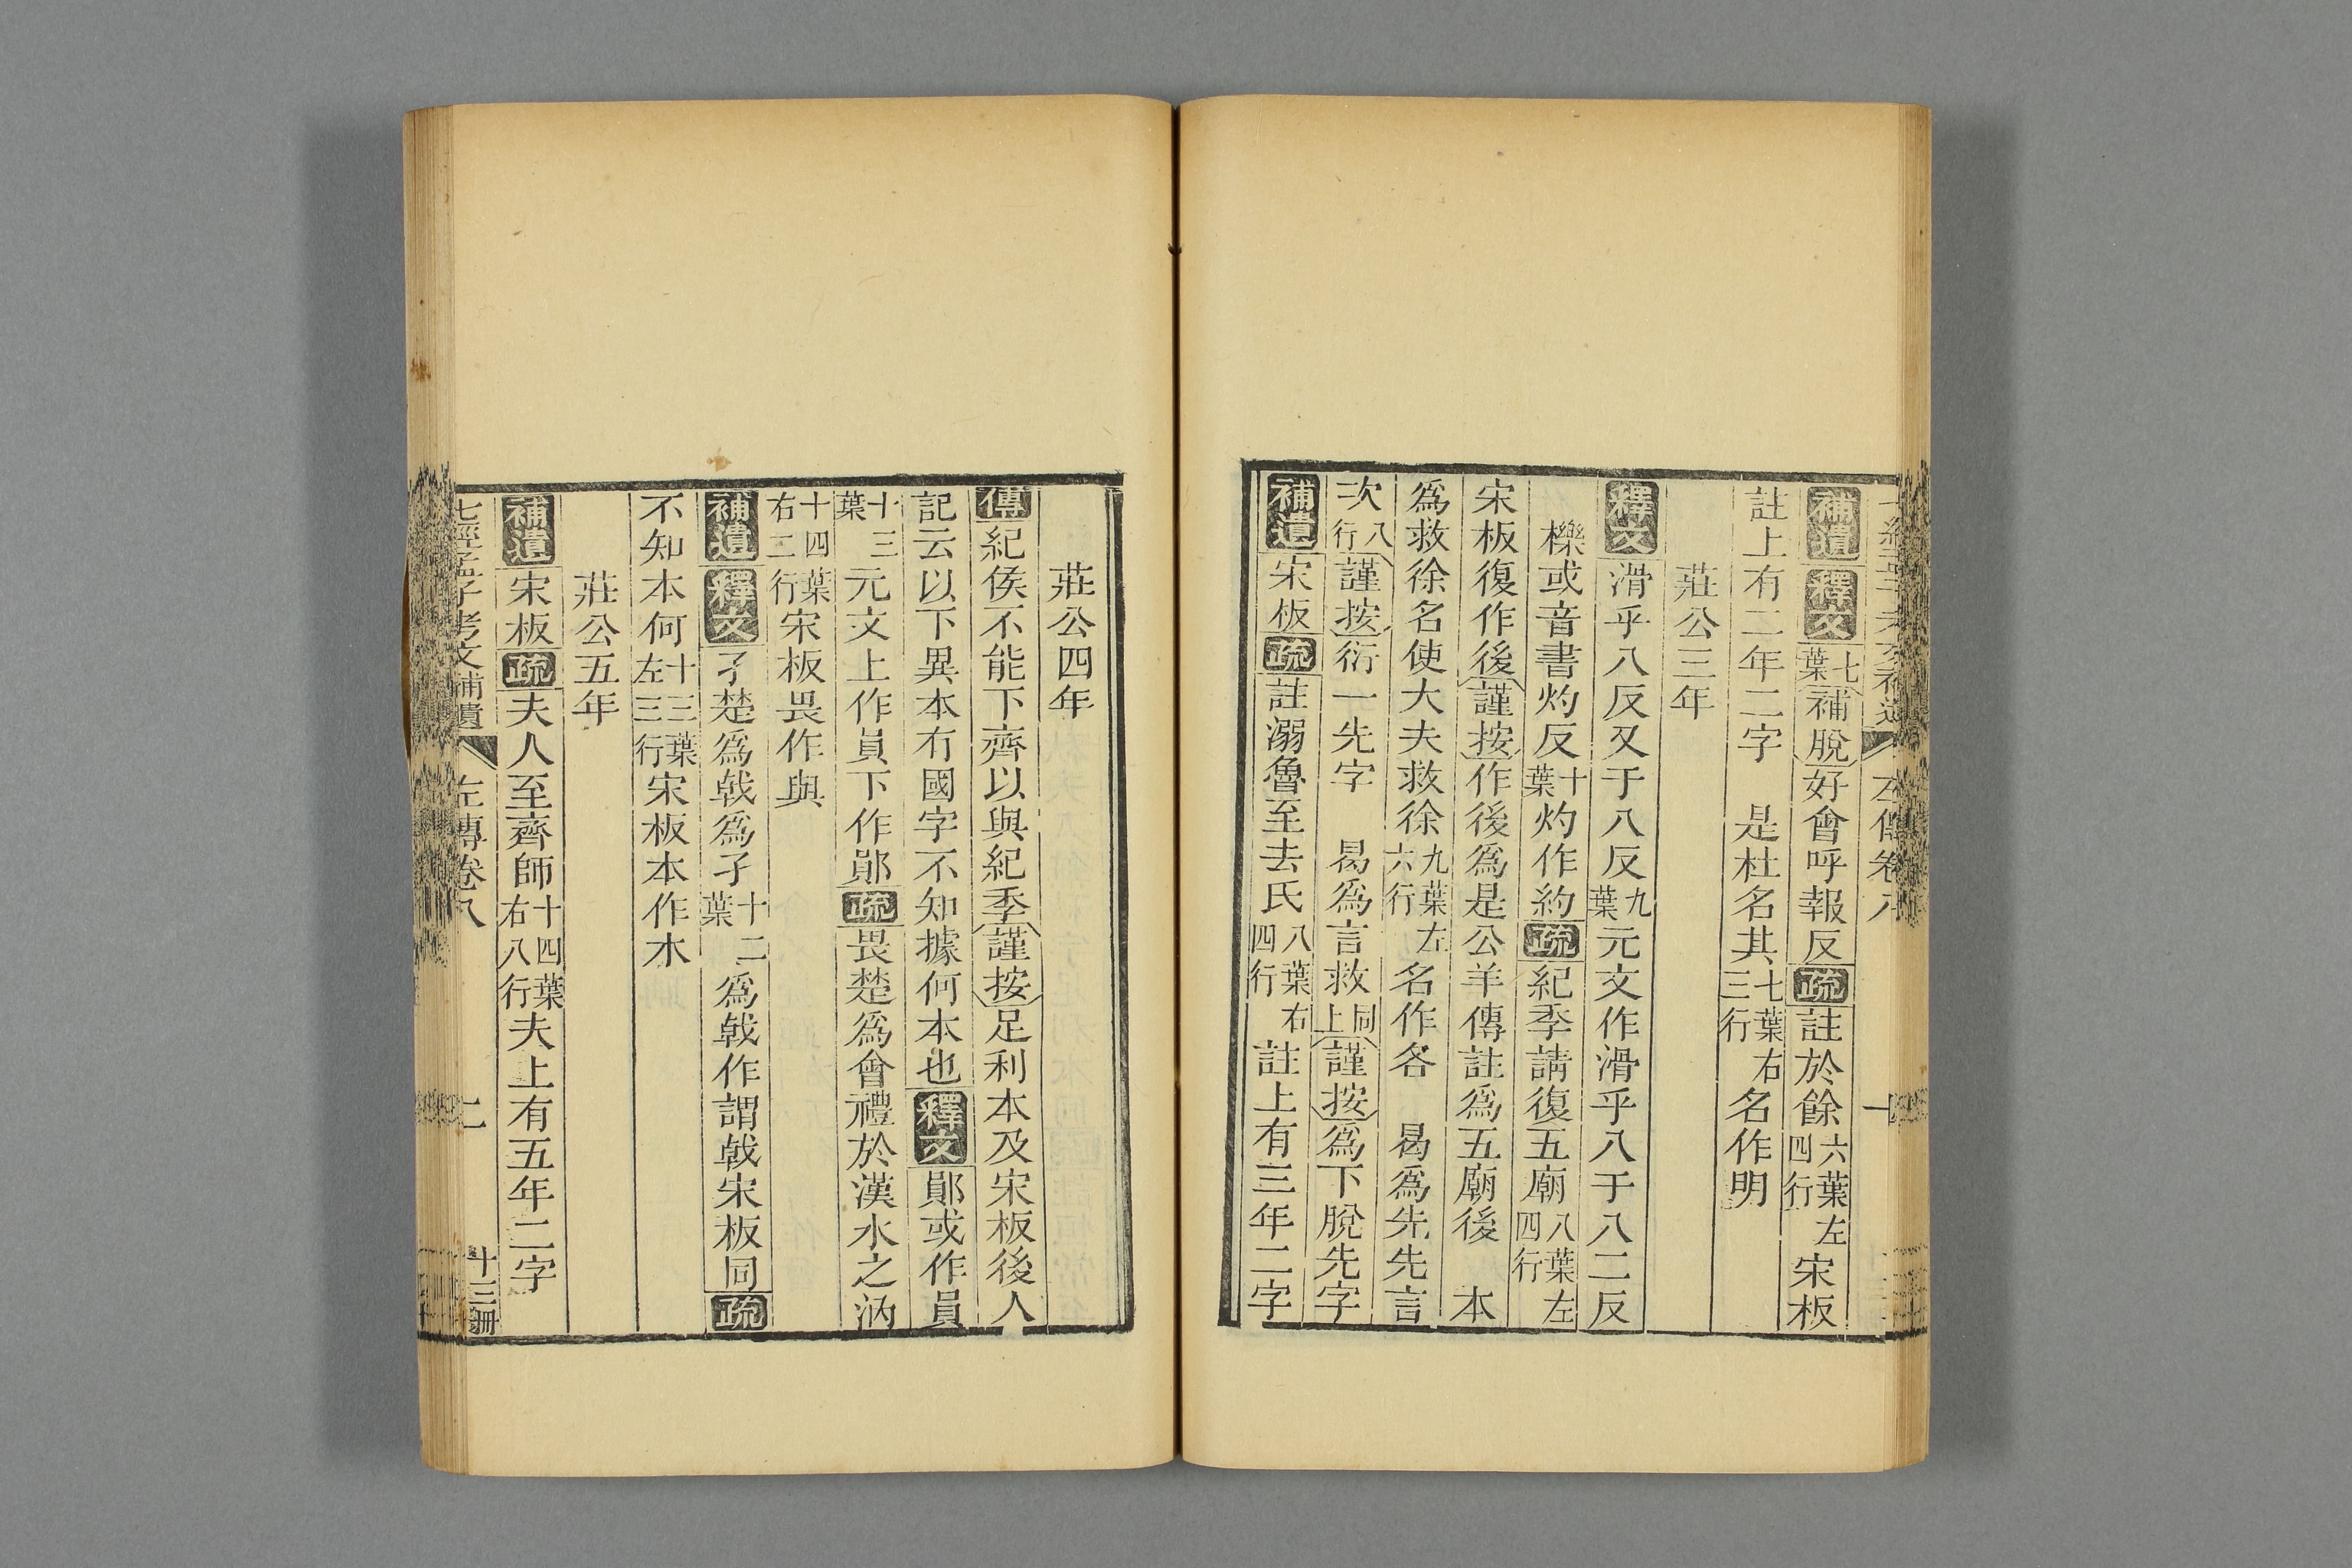 左傳卷八 一
補遺釋文七葉補脫好會呼報反疏註於餘六葉左四行宋板
註上有二年二字 是杜名其七葉右三行名作明
莊公三年
釋文滑乎八反又于八反九葉元文作滑乎八于八二反
櫟或音書灼反十葉灼作約疏紀季請復五廟八葉左四行
宋板復作後謹按作後爲是公羊傳註爲五廟後 本
爲救徐名使大夫救徐九葉左六行名作各 曷爲先先言
次八行謹按衍一先字 曷爲言救同上謹按爲下脫先字
補遺宋板疏註溺魯至去氏八葉右四行註上有三年二字
莊公四年
傳紀侯不能下齊以與紀季謹按足利本及宋板後人
記云以下異本冇國字不知據何本也釋文鄖或作員
十三葉元文上作員下作鄖疏畏楚爲會禮於漢水之汭
十四葉右二行宋板畏作與
補遺釋文孑楚爲戟爲孑十二葉爲戟作謂戟宋板同疏
不知本何十三葉左三行宋板本作木
莊公五年
補遺宋板疏夫人至齊師十四葉右八行夫上有五年二字
七經孟子考文補遺 左傳卷八 二 十三冊